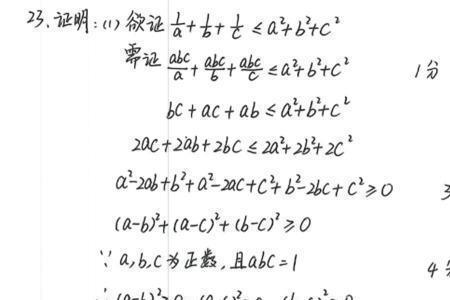 23.证明:(1) 欲证 1/a + 1/b + 1/c ≤ a²+b²+c²
需证 abc/a + abc/b + abc/c ≤ a²+b²+c² 1分
bc + ac + ab ≤ a²+b²+c²
2ac + 2ab + 2bc ≤ 2a²+2b²+2c²
a²-2ab+b²+a²-2ac+c²+b²-2bc+c² ≥ 0 3
(a-b)²+(a-c)²+(b-c)² ≥ 0
∵ a,b,c为正数,且abc=1 4分